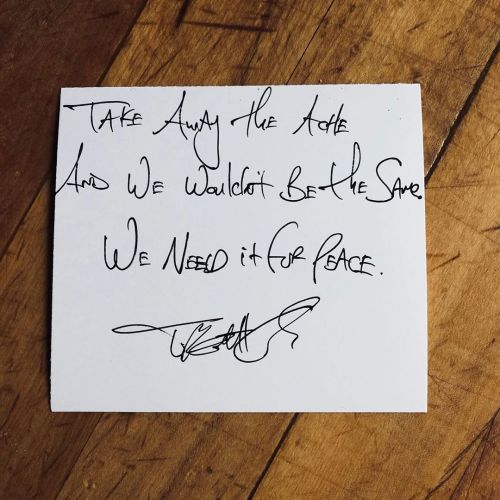 Take Away the Ache
And We Wouldn't Be the Same.
We Need it For Peace.